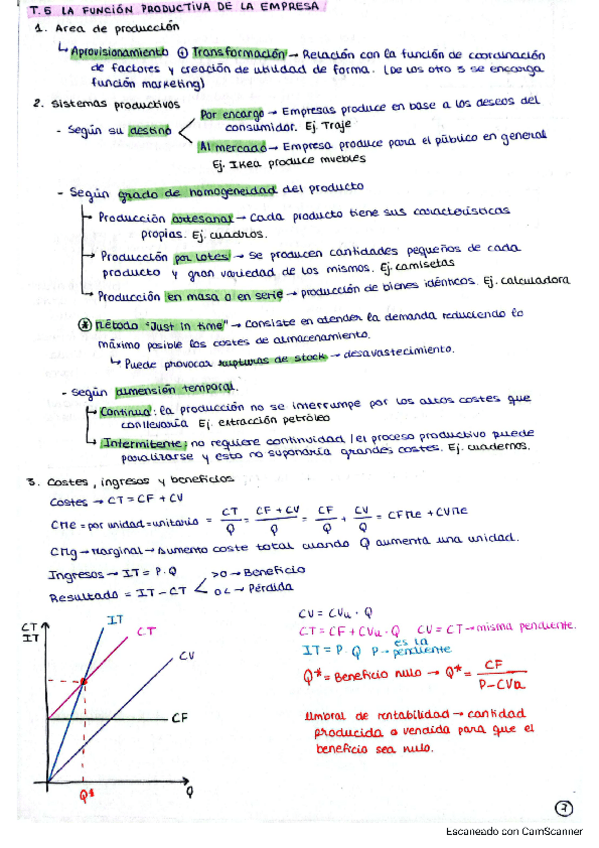 T.5 LA FUNCIÓN PRODUCTIVA DE LA EMPRESA
1. Area de producción
↳ Aprovisionamiento ① Transformación → Relación con la función de coordinación
de factores y creación de utilidad de forma. (De las otra 3 se encarga
función marketing)
2. Sistemas productivos
- Según su destino
Por encargo → Empresas produce en base a los deseos del
consumidor. Ej. Traje
Al mercado → Empresa produce para el público en general
Ej. Ikea produce muebles
- Según grado de homogeneidad del producto
Producción artesanal → Cada producto tiene sus características
propias. Ej. cuadros.
Producción por lotes → Se producen cantidades pequeñas de cada
producto y gran variedad de los mismos. Ej. camisetas
Producción en masa o en serie → producción de bienes idénticos. Ej. calculadora
* Método "Just in time" → Consiste en atender la demanda reduciendo lo
máximo posible los costes de almacenamiento.
↳ Puede provocar rupturas de stock → desavastecimiento.
- Según dimensión temporal.
Continua: la producción no se interrumpe por los altos costes que
conllevaría Ej. extracción petróleo
Intermitente: no requiere continuidad / el proceso productivo puede
paralizarse y esto no suponaría grandes costes. Ej. cuadernos.
3. Costes, ingresos y beneficios
Costes → CT = CF + CV
CMe = por unidad = unitario = CT/Q = CF + CV/Q = CF/Q + CV/Q = CFMe + CVMe
CMg → Marginal → Aumento coste total cuando Q aumenta una unidad.
Ingresos → IT = P·Q
Resultado = IT - CT < >0 → Beneficio
0< → Pérdida
CT
IT
IT
CT
CV
CF
Q*
Q
CV = CVu · Q
CT = CF + CVu · Q CV = CT → misma pendiente.
IT = P · Q P → es la pendiente
Q* = Beneficio nulo → Q* = CF/P-CVu
Umbral de rentabilidad → cantidad
producida o vendida para que el
beneficio sea nulo.
7
Escaneado con CamScanner